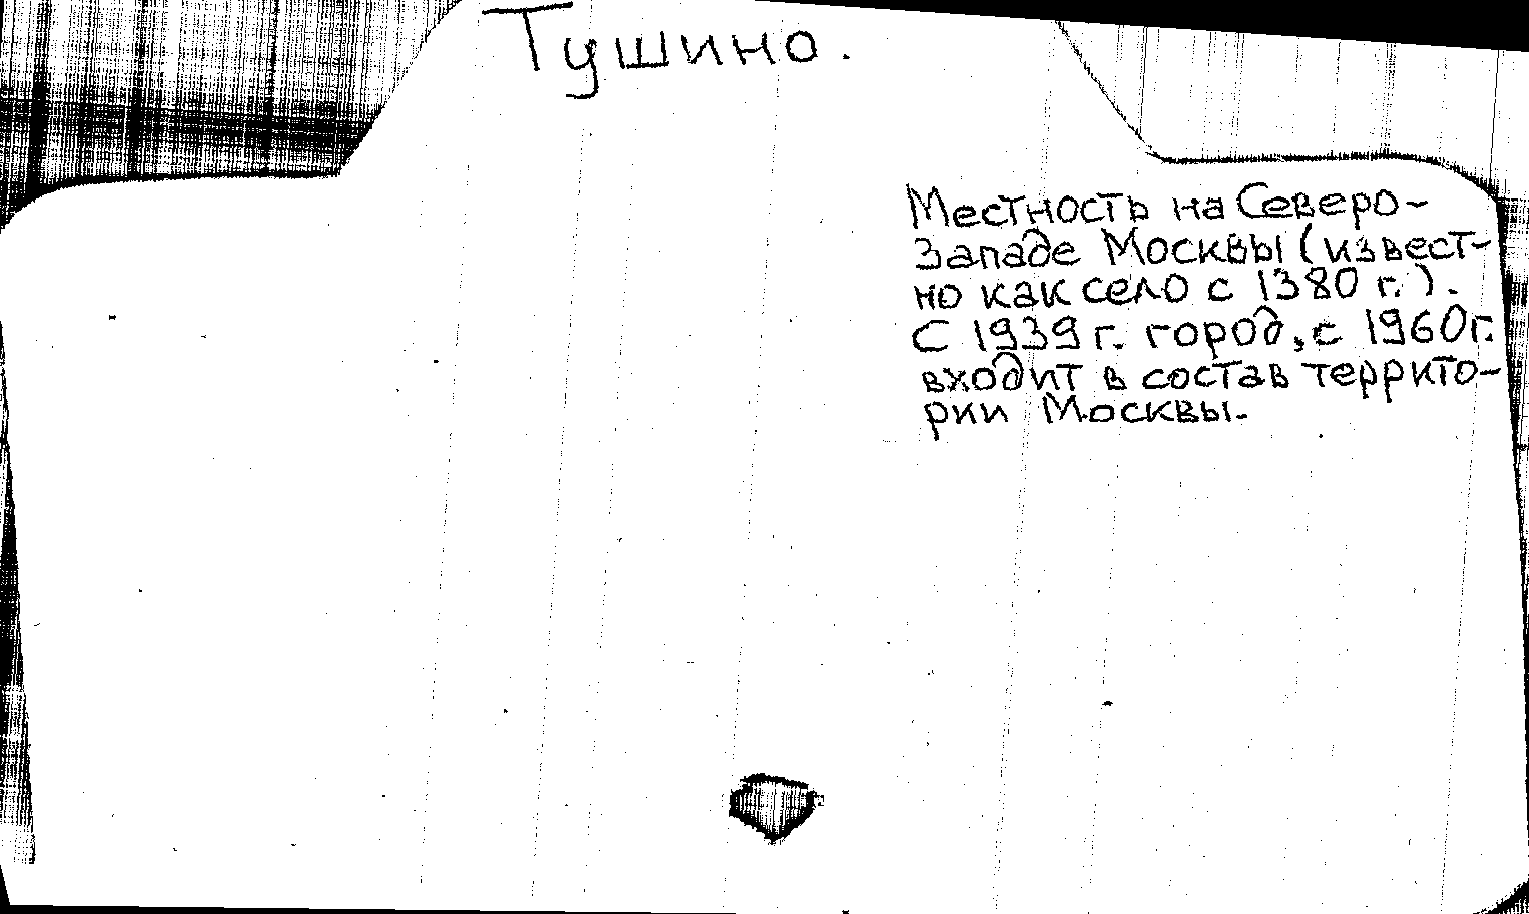 Тушино.
Местность на Северо-
Западе Москвы (извест-
но как село с 1380 г.).
С 1939 г. город, с 1960 г.
входит в состав террито-
рии Москвы.